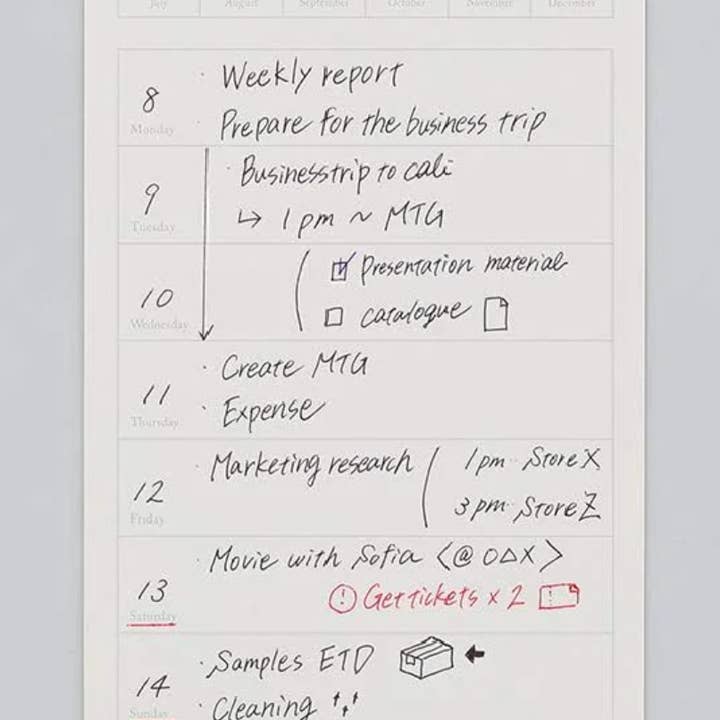 July August September October November December
8 Monday
· Weekly report
· Prepare for the business trip
9 Tuesday
· Business trip to cali
↳ 1 pm ~ MTG
10 Wednesday
☑ Presentation material
☐ catalogue
11 Thursday
· Create MTG
· Expense
12 Friday
· Marketing research
1 pm·· Store X
3 pm·· Store Z
13 Saturday
· Movie with Sofia <@ O△X>
! Get tickets x 2
14 Sunday
· Samples ETD ←
· Cleaning